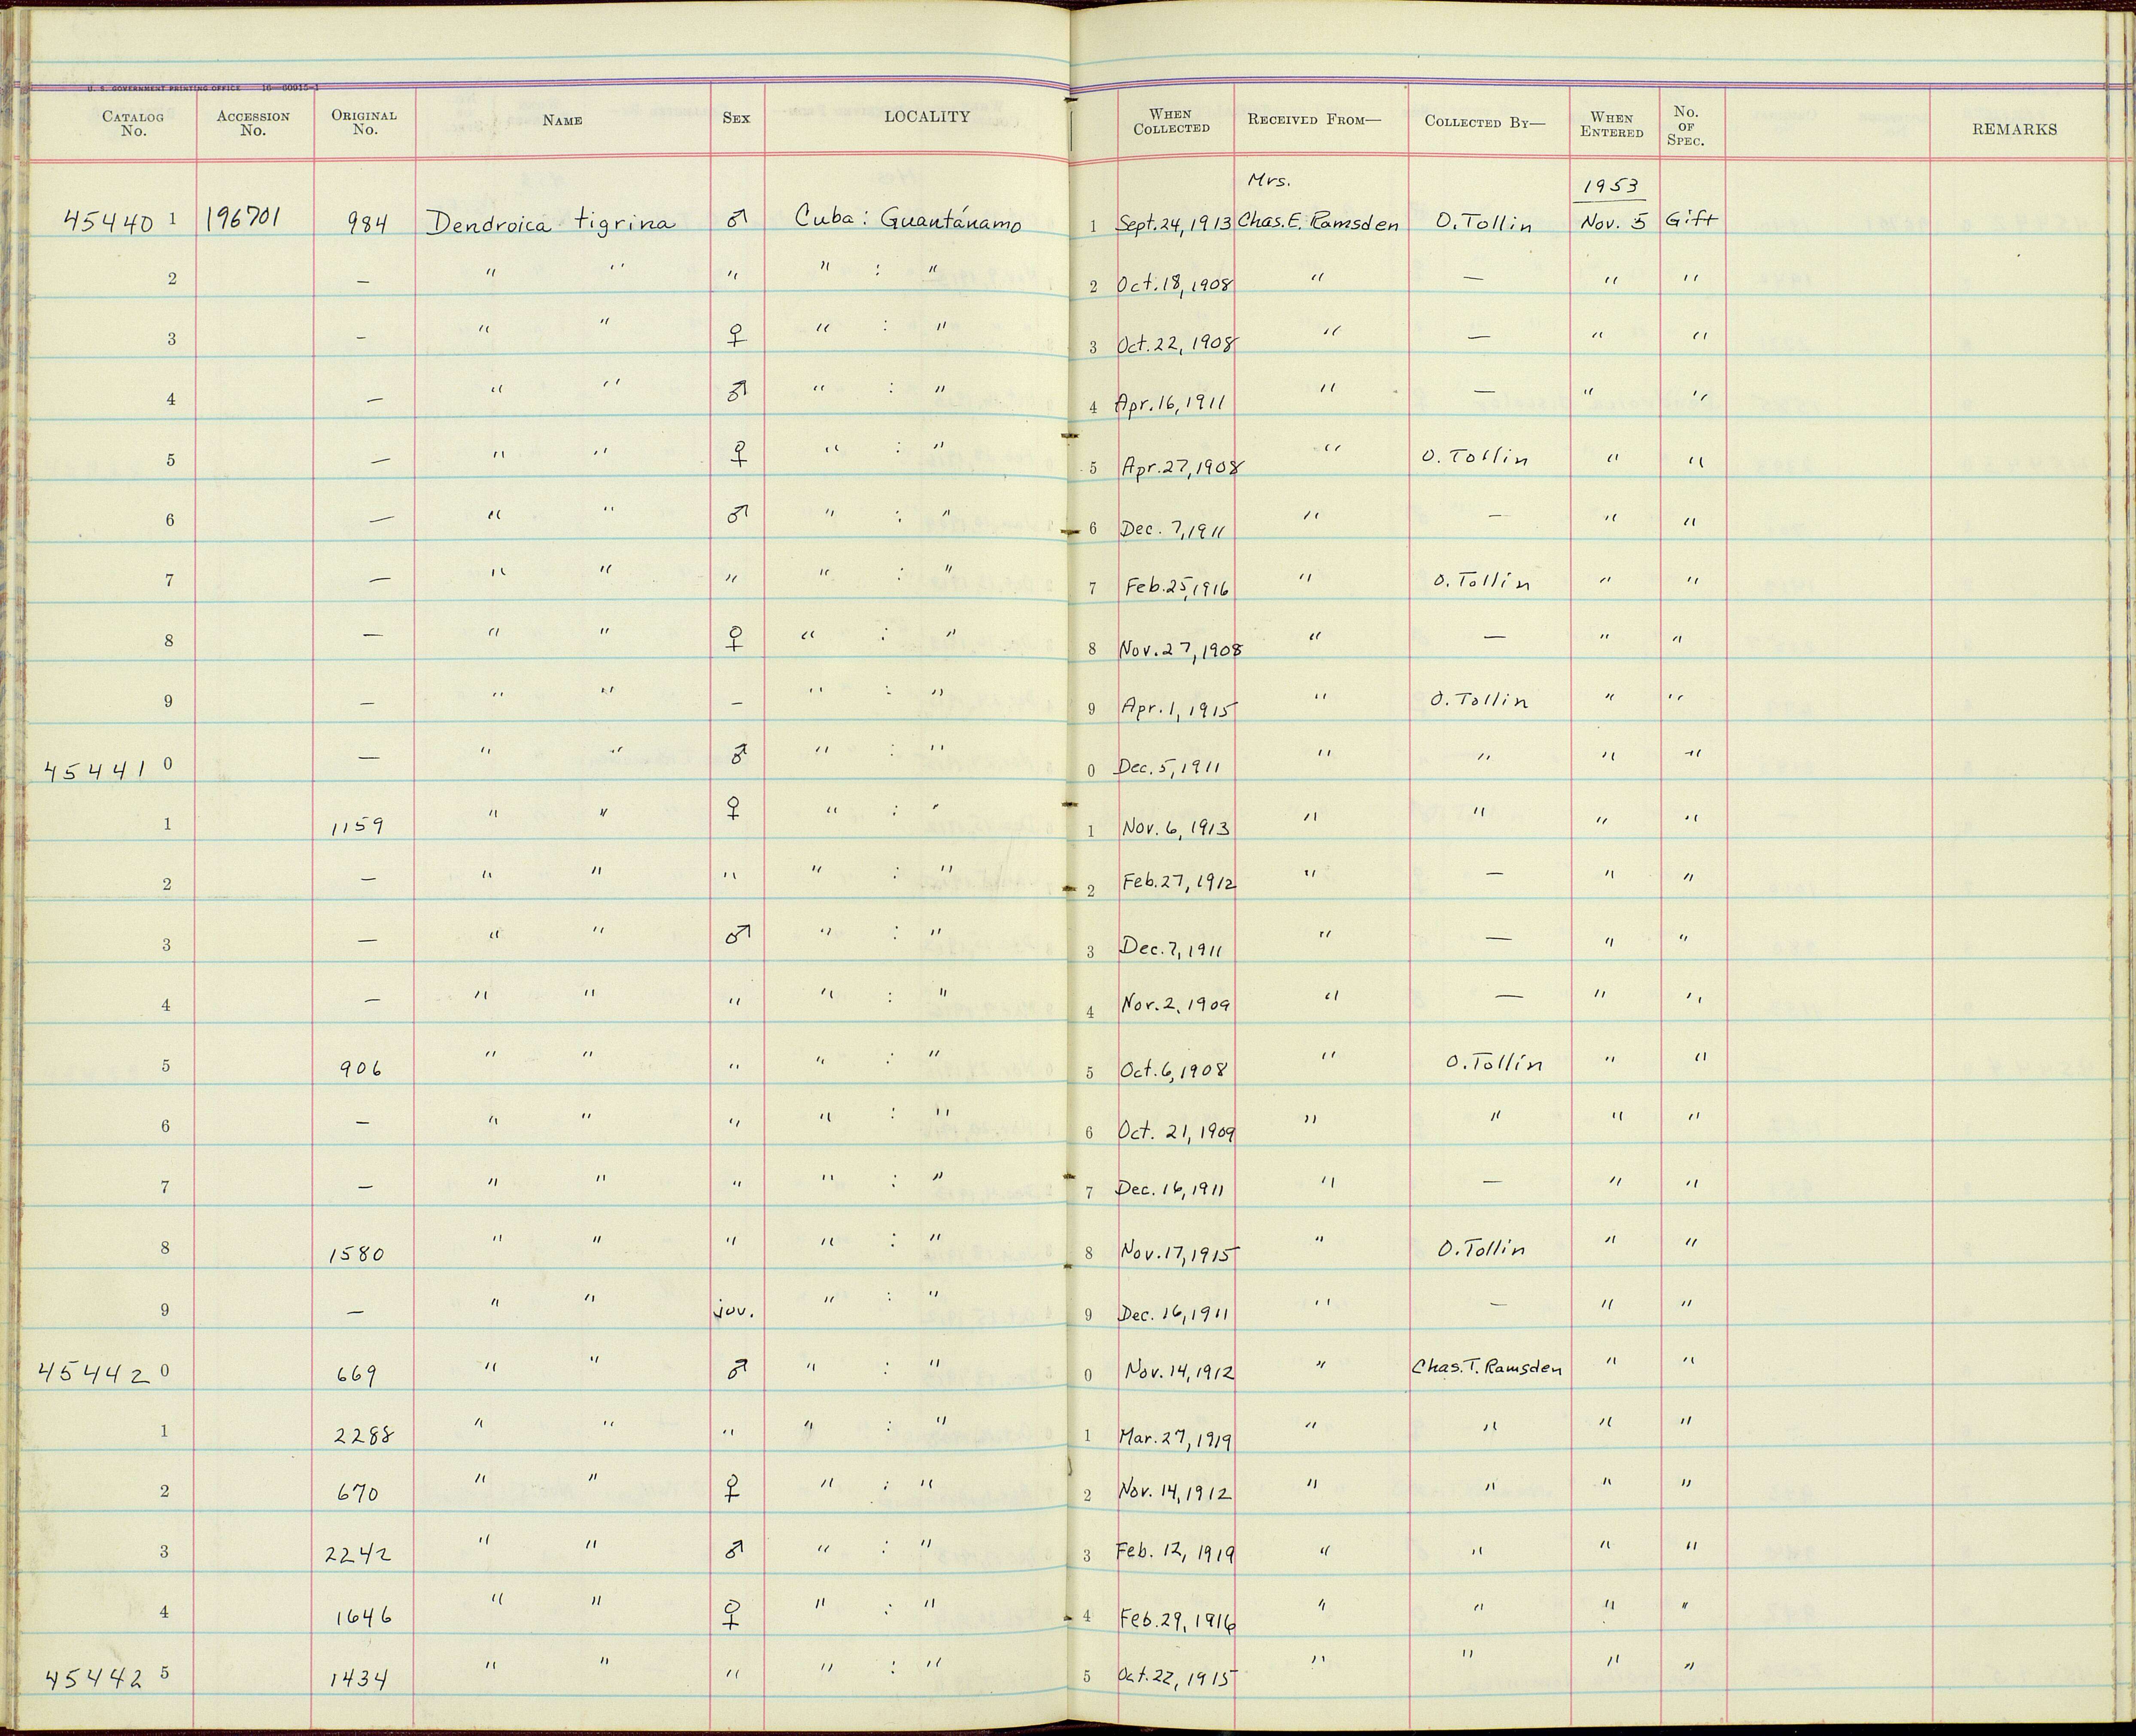 U. S. GOVERNMENT PRINTING OFFICE 16—60915-1
CATALOG No. ACCESSION No. ORIGINAL No. NAME SEX LOCALITY WHEN COLLECTED RECEIVED FROM— COLLECTED BY— WHEN ENTERED No. OF SPEC. REMARKS
Mrs. 1953
45440 1 196701 984 Dendroica tigrina ♂ Cuba : Guantánamo 1 Sept. 24, 1913 Chas. E. Ramsden O. Tollin Nov. 5 Gift
2 — " " " " : " 2 Oct. 18, 1908 " — " "
3 — " " ♀ " : " 3 Oct. 22, 1908 " — " "
4 — " " ♂ " : " 4 Apr. 16, 1911 " — " "
5 — " " ♀ " : " 5 Apr. 27, 1908 " O. Tollin " "
6 — " " ♂ " : " 6 Dec. 7, 1911 " — " "
7 — " " " " : " 7 Feb. 25, 1916 " O. Tollin " "
8 — " " ♀ " : " 8 Nov. 27, 1908 " — " "
9 — " " — " : " 9 Apr. 1, 1915 " O. Tollin " "
45441 0 — " " ♂ " : " 0 Dec. 5, 1911 " " " "
1 1159 " " ♀ " : " 1 Nov. 6, 1913 " " " "
2 — " " " " : " 2 Feb. 27, 1912 " — " "
3 — " " ♂ " : " 3 Dec. 7, 1911 " — " "
4 — " " " " : " 4 Nov. 2, 1909 " — " "
5 906 " " " " : " 5 Oct. 6, 1908 " O. Tollin " "
6 — " " " " : " 6 Oct. 21, 1909 " " " "
7 — " " " " : " 7 Dec. 16, 1911 " — " "
8 1580 " " " " : " 8 Nov. 17, 1915 " O. Tollin " "
9 — " " juv. " : " 9 Dec. 16, 1911 " — " "
45442 0 669 " " ♂ " : " 0 Nov. 14, 1912 " Chas. T. Ramsden " "
1 2288 " " " " : " 1 Mar. 27, 1919 " " " "
2 670 " " ♀ " : " 2 Nov. 14, 1912 " " " "
3 2242 " " ♂ " : " 3 Feb. 12, 1919 " " " "
4 1646 " " ♀ " : " 4 Feb. 29, 1916 " " " "
45442 5 1434 " " " " : " 5 Oct. 22, 1915 " " " "